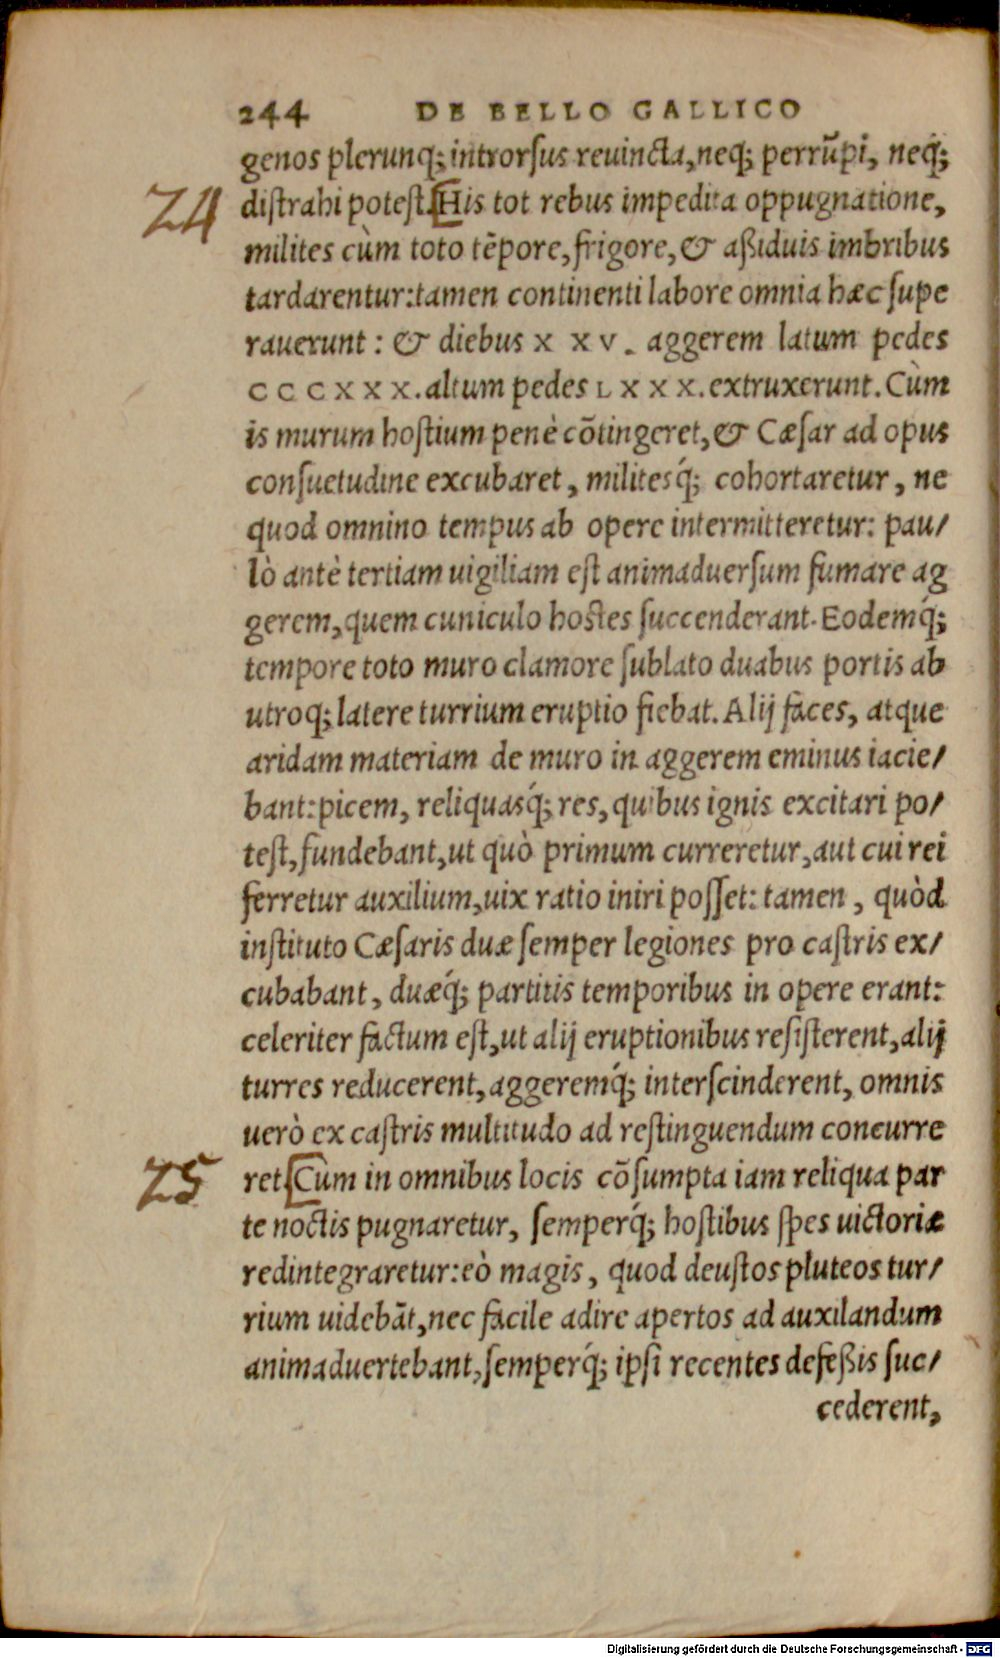 244 DE BELLO GALLICO
genos plerunq́; introrſus reuincta, neq́; perrũpi, neq́;
24 diſtrahi poteſt. [His tot rebus impedita oppugnatione,
milites cùm toto tẽpore, frigore, & aßiduis imbribus
tardarentur: tamen continenti labore omnia hæc ſupe
rauerunt: & diebus X X V. aggerem latum pedes
C C C X X X. altum pedes L X X X. extruxerunt. Cùm
is murum hoſtium penè cõtingeret, & Cæſar ad opus
conſuetudine excubaret, militesq́; cohortaretur, ne
quod omnino tempus ab opere intermitteretur: pau/
lò antè tertiam uigiliam eſt animaduerſum fumare ag
gerem, quem cuniculo hoſtes ſuccenderant. Eodemq́;
tempore toto muro clamore ſublato duabus portis ab
utroq; latere turrium eruptio fiebat. Alij faces, atque
aridam materiam de muro in aggerem eminus iacie/
bant: picem, reliquasq́; res, quibus ignis excitari po/
teſt, fundebant, ut quò primum curreretur, aut cui rei
ferretur auxilium, uix ratio iniri poſſet: tamen, quòd
inſtituto Cæſaris duæ ſemper legiones pro caſtris ex/
cubabant, duæq́; partitis temporibus in opere erant:
celeriter factum eſt, ut alij eruptionibus reſiſterent, alij
turres reducerent, aggeremq́; interſcinderent, omnis
uerò ex caſtris multitudo ad reſtinguendum concurre
25 ret. [Cùm in omnibus locis cõſumpta iam reliqua par
te noctis pugnaretur, ſemperq́; hoſtibus ſpes uictoriæ
redintegraretur: eò magis, quod deuſtos pluteos tur/
rium uidebãt, nec facile adire apertos ad auxilandum
animaduertebant, ſemperq́; ipſi recentes defeßis ſuc/
cederent,
Digitalisierung gefördert durch die Deutsche Forschungsgemeinschaft - DFG